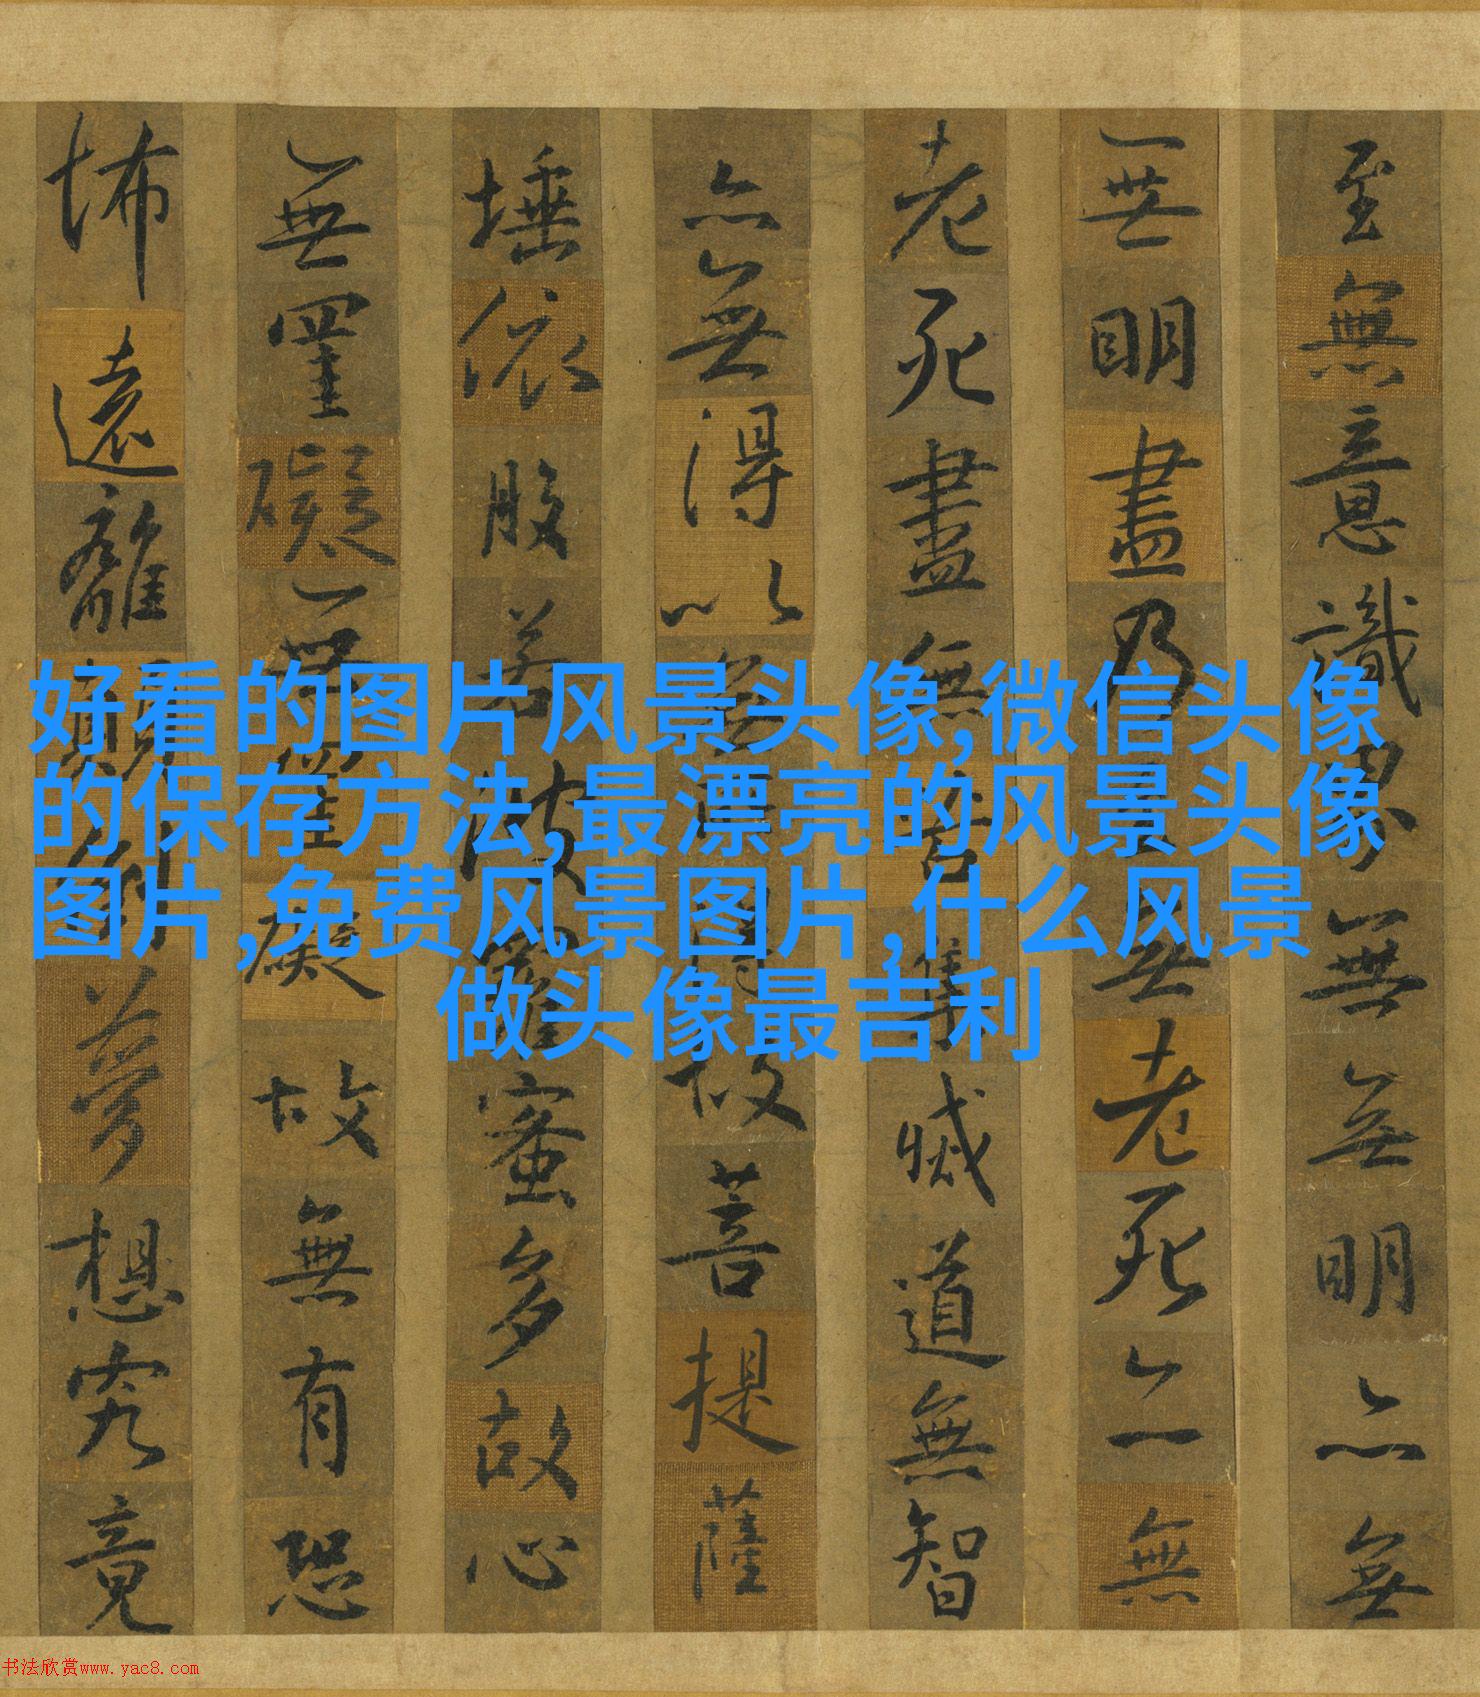 至無意識界無無明亦無
無明盡乃至無老死亦無
老死盡無苦集滅道無智
亦無得以無所得故菩提薩
埵依般若波羅蜜多故心
無罣礙無罣礙故無有恐
怖遠離顛倒夢想究竟
好看的图片风景头像,微信头像
的保存方法,最漂亮的风景头像
图片,免费风景图片,什么风景
做头像最吉利
书法欣赏www.yac8.com